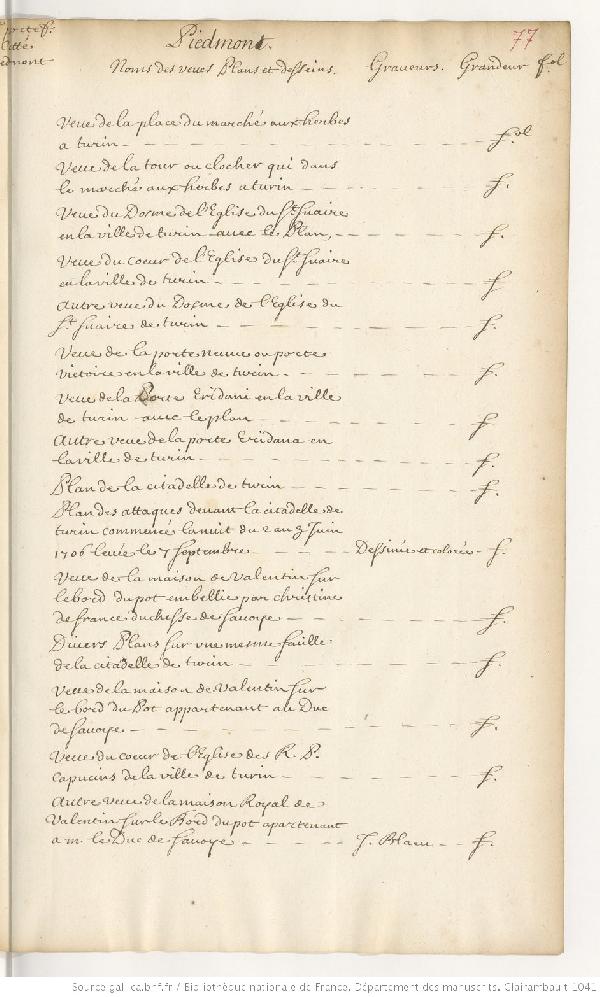 Piedmont.
77
Noms des veues Plans et desseins. Graueurs. Grandeur fol
Veue de la place du marché aux herbes
a turin fol
Veue de la tour ou clocher qui dans
le marché aux herbes a turin f.
Veue du Dosme de l'Eglise du St Suaire
en la ville de turin auec le Plan, f.
Veue du coeur de l'Eglise du St Suaire
en la ville de turin f
Autre veue du Dosme de l'Eglise du
St Suaire de turin f.
Veue de la porte neuue ou porte
victoire en la ville de turin. f.
Veue de la Porte Eridani en la ville
de turin auec le plan f
Autre veue de la porte Eridana en
la ville de turin f.
Plan de la citadelle de turin f.
Plan des attaques deuant la citadelle de
turin commencé la nuit du 2 au 3 Juin
1706 leuée le 7 septembre Dessinée et colorée f.
Veue de la maison de Valentin sur
le bord du pot embellie par christine
de france duchesse de sauoye f.
Divers Plans sur vne mesme faille
de la citadelle de turin f.
Veue de la maison de Valentin sur
le bord du Pot appartenant au Duc
de sauoye f.
Veue du coeur de l'Eglise des R. P.
capucins de la ville de turin f.
Autre veue de la maison Royal de
Valentin sur le Bord du pot apartenant
a m. le Duc de Sauoye J. Blaeu f.
Source gallica.bnf.fr / Bibliothèque nationale de France. Département des manuscrits. Clairambault 1041